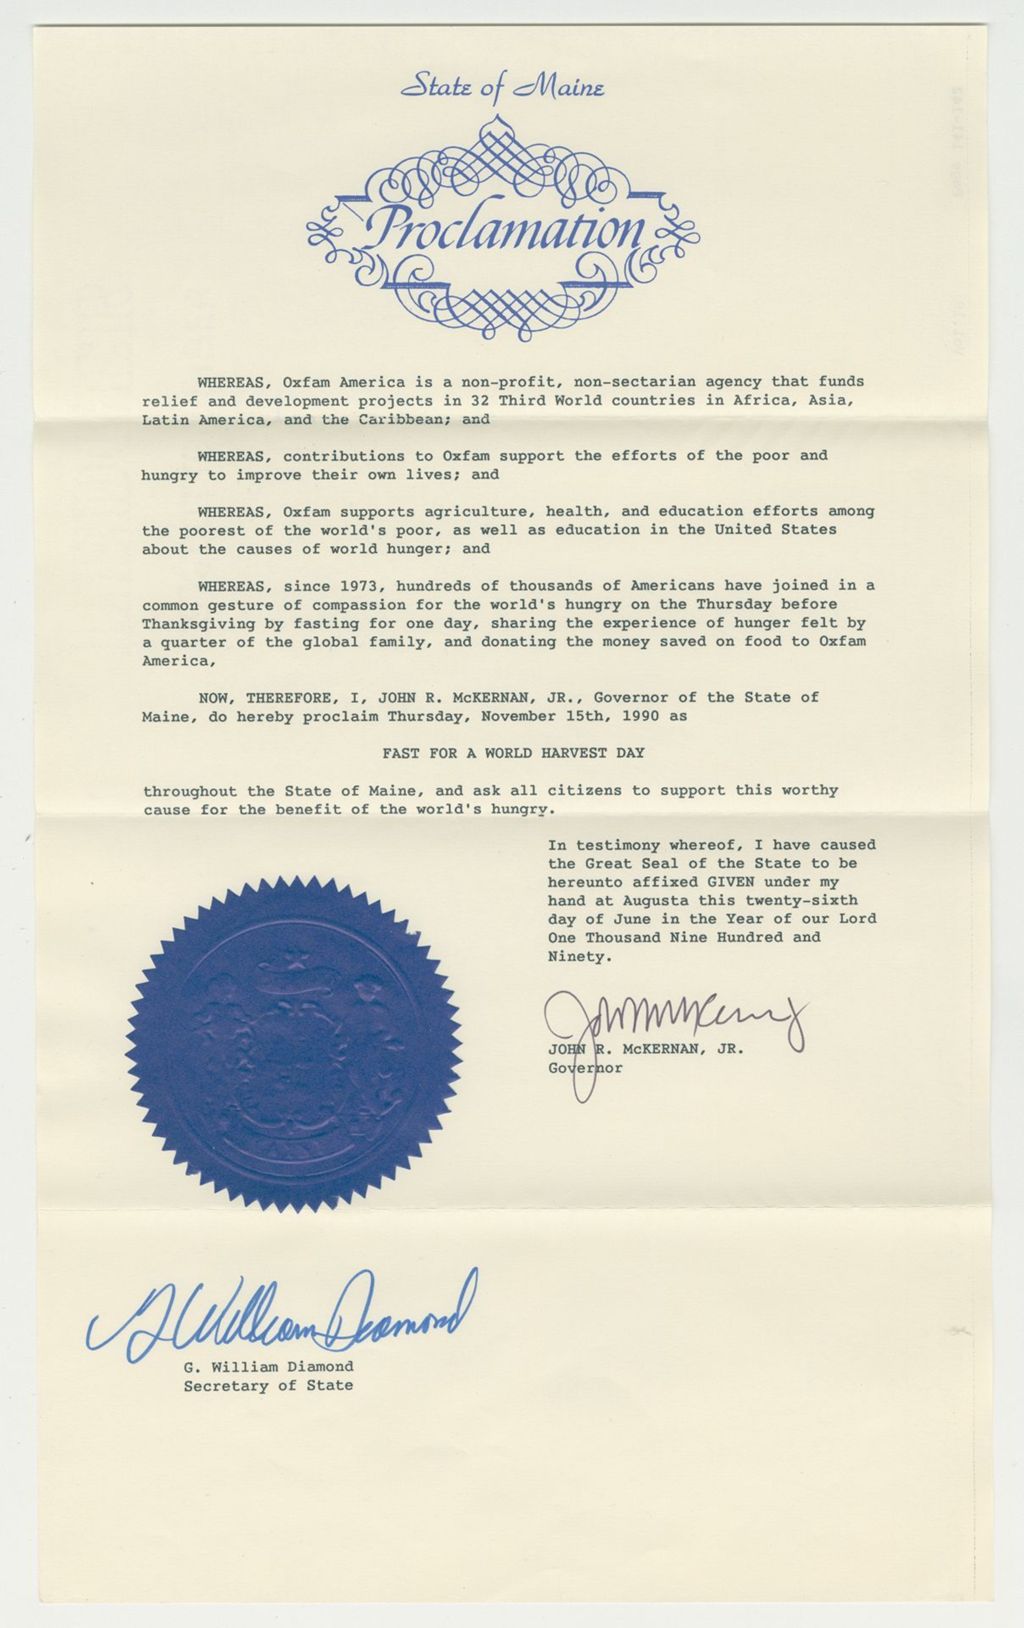 State of Maine
Proclamation
WHEREAS, Oxfam America is a non-profit, non-sectarian agency that funds
relief and development projects in 32 Third World countries in Africa, Asia,
Latin America, and the Caribbean; and
WHEREAS, contributions to Oxfam support the efforts of the poor and
hungry to improve their own lives; and
WHEREAS, Oxfam supports agriculture, health, and education efforts among
the poorest of the world's poor, as well as education in the United States
about the causes of world hunger; and
WHEREAS, since 1973, hundreds of thousands of Americans have joined in a
common gesture of compassion for the world's hungry on the Thursday before
Thanksgiving by fasting for one day, sharing the experience of hunger felt by
a quarter of the global family, and donating the money saved on food to Oxfam
America,
NOW, THEREFORE, I, JOHN R. McKERNAN, JR., Governor of the State of
Maine, do hereby proclaim Thursday, November 15th, 1990 as
FAST FOR A WORLD HARVEST DAY
throughout the State of Maine, and ask all citizens to support this worthy
cause for the benefit of the world's hungry.
In testimony whereof, I have caused
the Great Seal of the State to be
hereunto affixed GIVEN under my
hand at Augusta this twenty-sixth
day of June in the Year of our Lord
One Thousand Nine Hundred and
Ninety.
JOHN R. McKERNAN, JR.
Governor
G William Diamond
G. William Diamond
Secretary of State